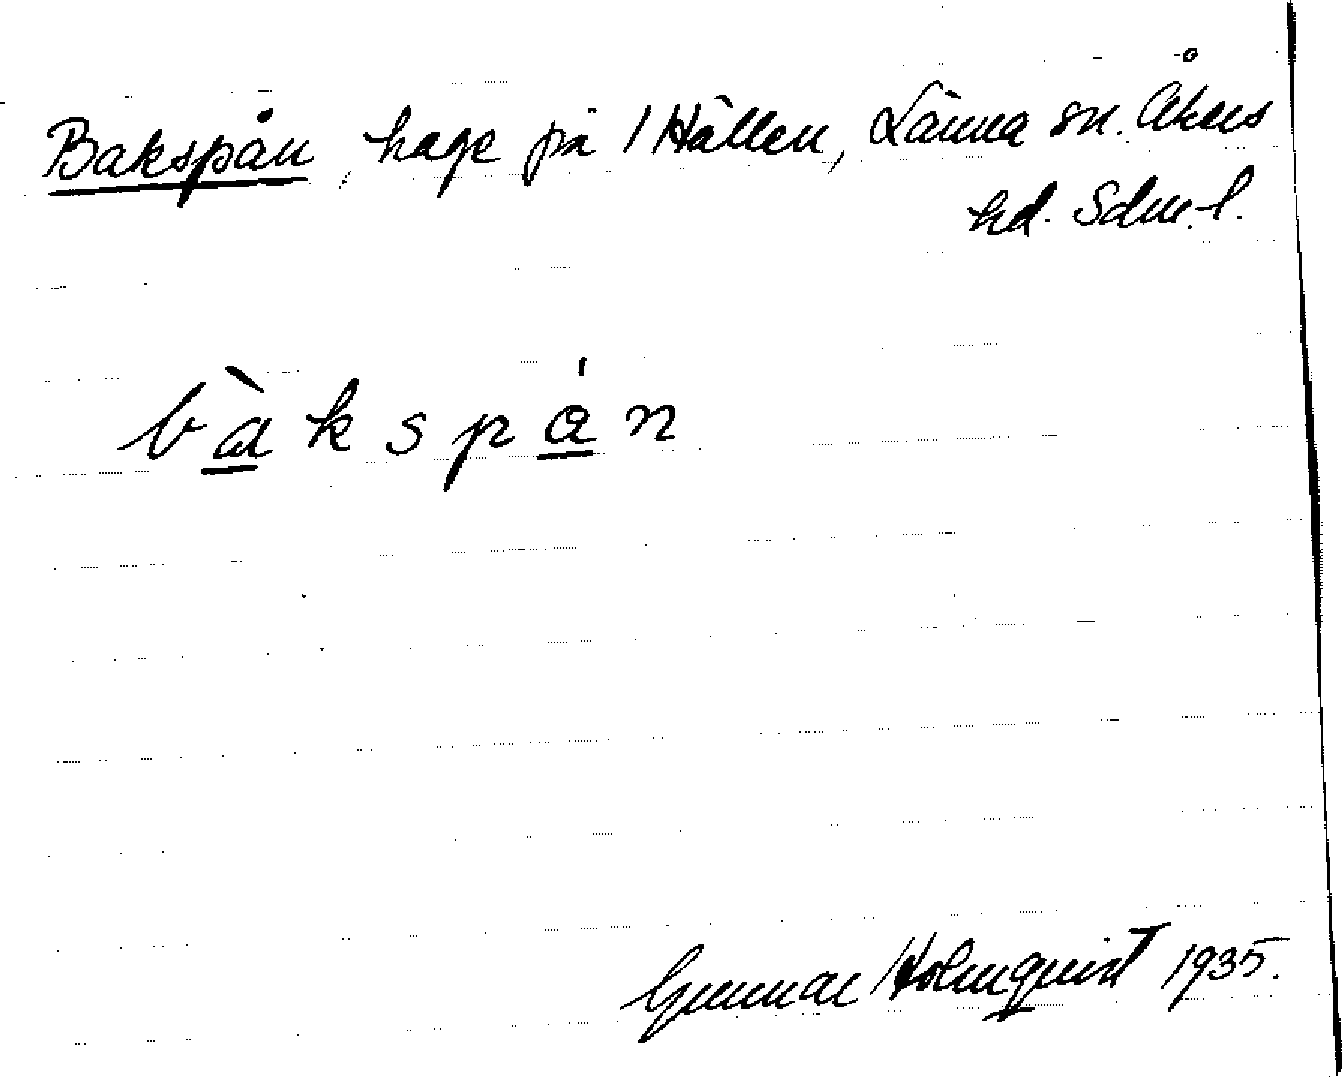 Bakspån, hage på Hällen, Länna sn. Åkers
hd. Sdm. l.
bàkspán
Gunnar Holmquist 1935.